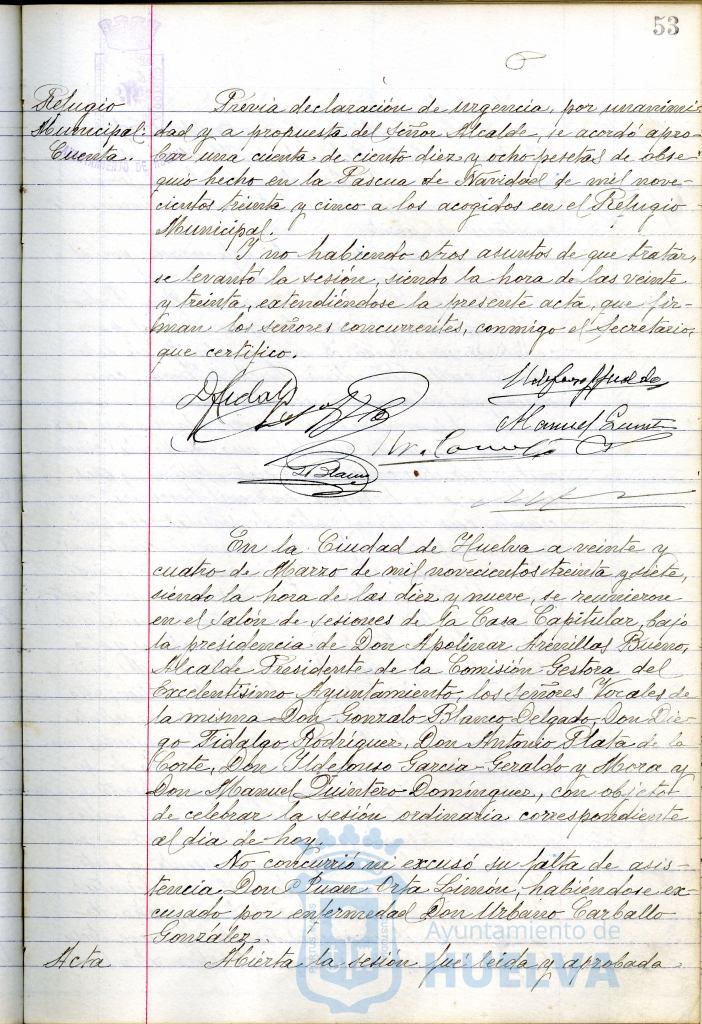 53
Refugio
Municipal.
Cuenta.
Previa declaración de urgencia, por unanimi-
dad y a propuesta del Señor Alcalde, se acordó apro-
bar una cuenta de ciento diez y ocho pesetas de obse-
quio hecho en la Pascua de Navidad de mil nove-
cientos treinta y cinco a los acogidos en el Refugio
Municipal.
Y no habiendo otros asuntos de que tratar,
se levantó la sesión, siendo la hora de las veinte
y treinta, extendiéndose la presente acta, que fir-
man los señores concurrentes, conmigo el Secretario,
que certifico.
DFidalgo
Manuel Quint
DBlanco
En la Ciudad de Huelva a veinte y
cuatro de Marzo de mil novecientos treinta y siete,
siendo la hora de las diez y nueve, se reunieron
en el Salón de sesiones de la Casa Capitular, bajo
la presidencia de Don Apolinar Arenillas Bueno,
Alcalde Presidente de la Comisión Gestora del
Excelentísimo Ayuntamiento, los Señores Vocales de
la misma Don Gonzalo Blanco Delgado, Don Die-
go Fidalgo Rodríguez, Don Antonio Plata de la
Corte, Don Ildefonso García-Geraldo y Mora y
Don Manuel Quintero Domínguez, con objeto
de celebrar la sesión ordinaria correspondiente
al día de hoy.
No concurrió ni excusó su falta de asis-
tencia Don Juan Orta Limón, habiéndose ex-
cusado por enfermedad Don Urbano Carballo
González.
Acta
Abierta la sesión fué leída y aprobada
Ayuntamiento de
HUELVA